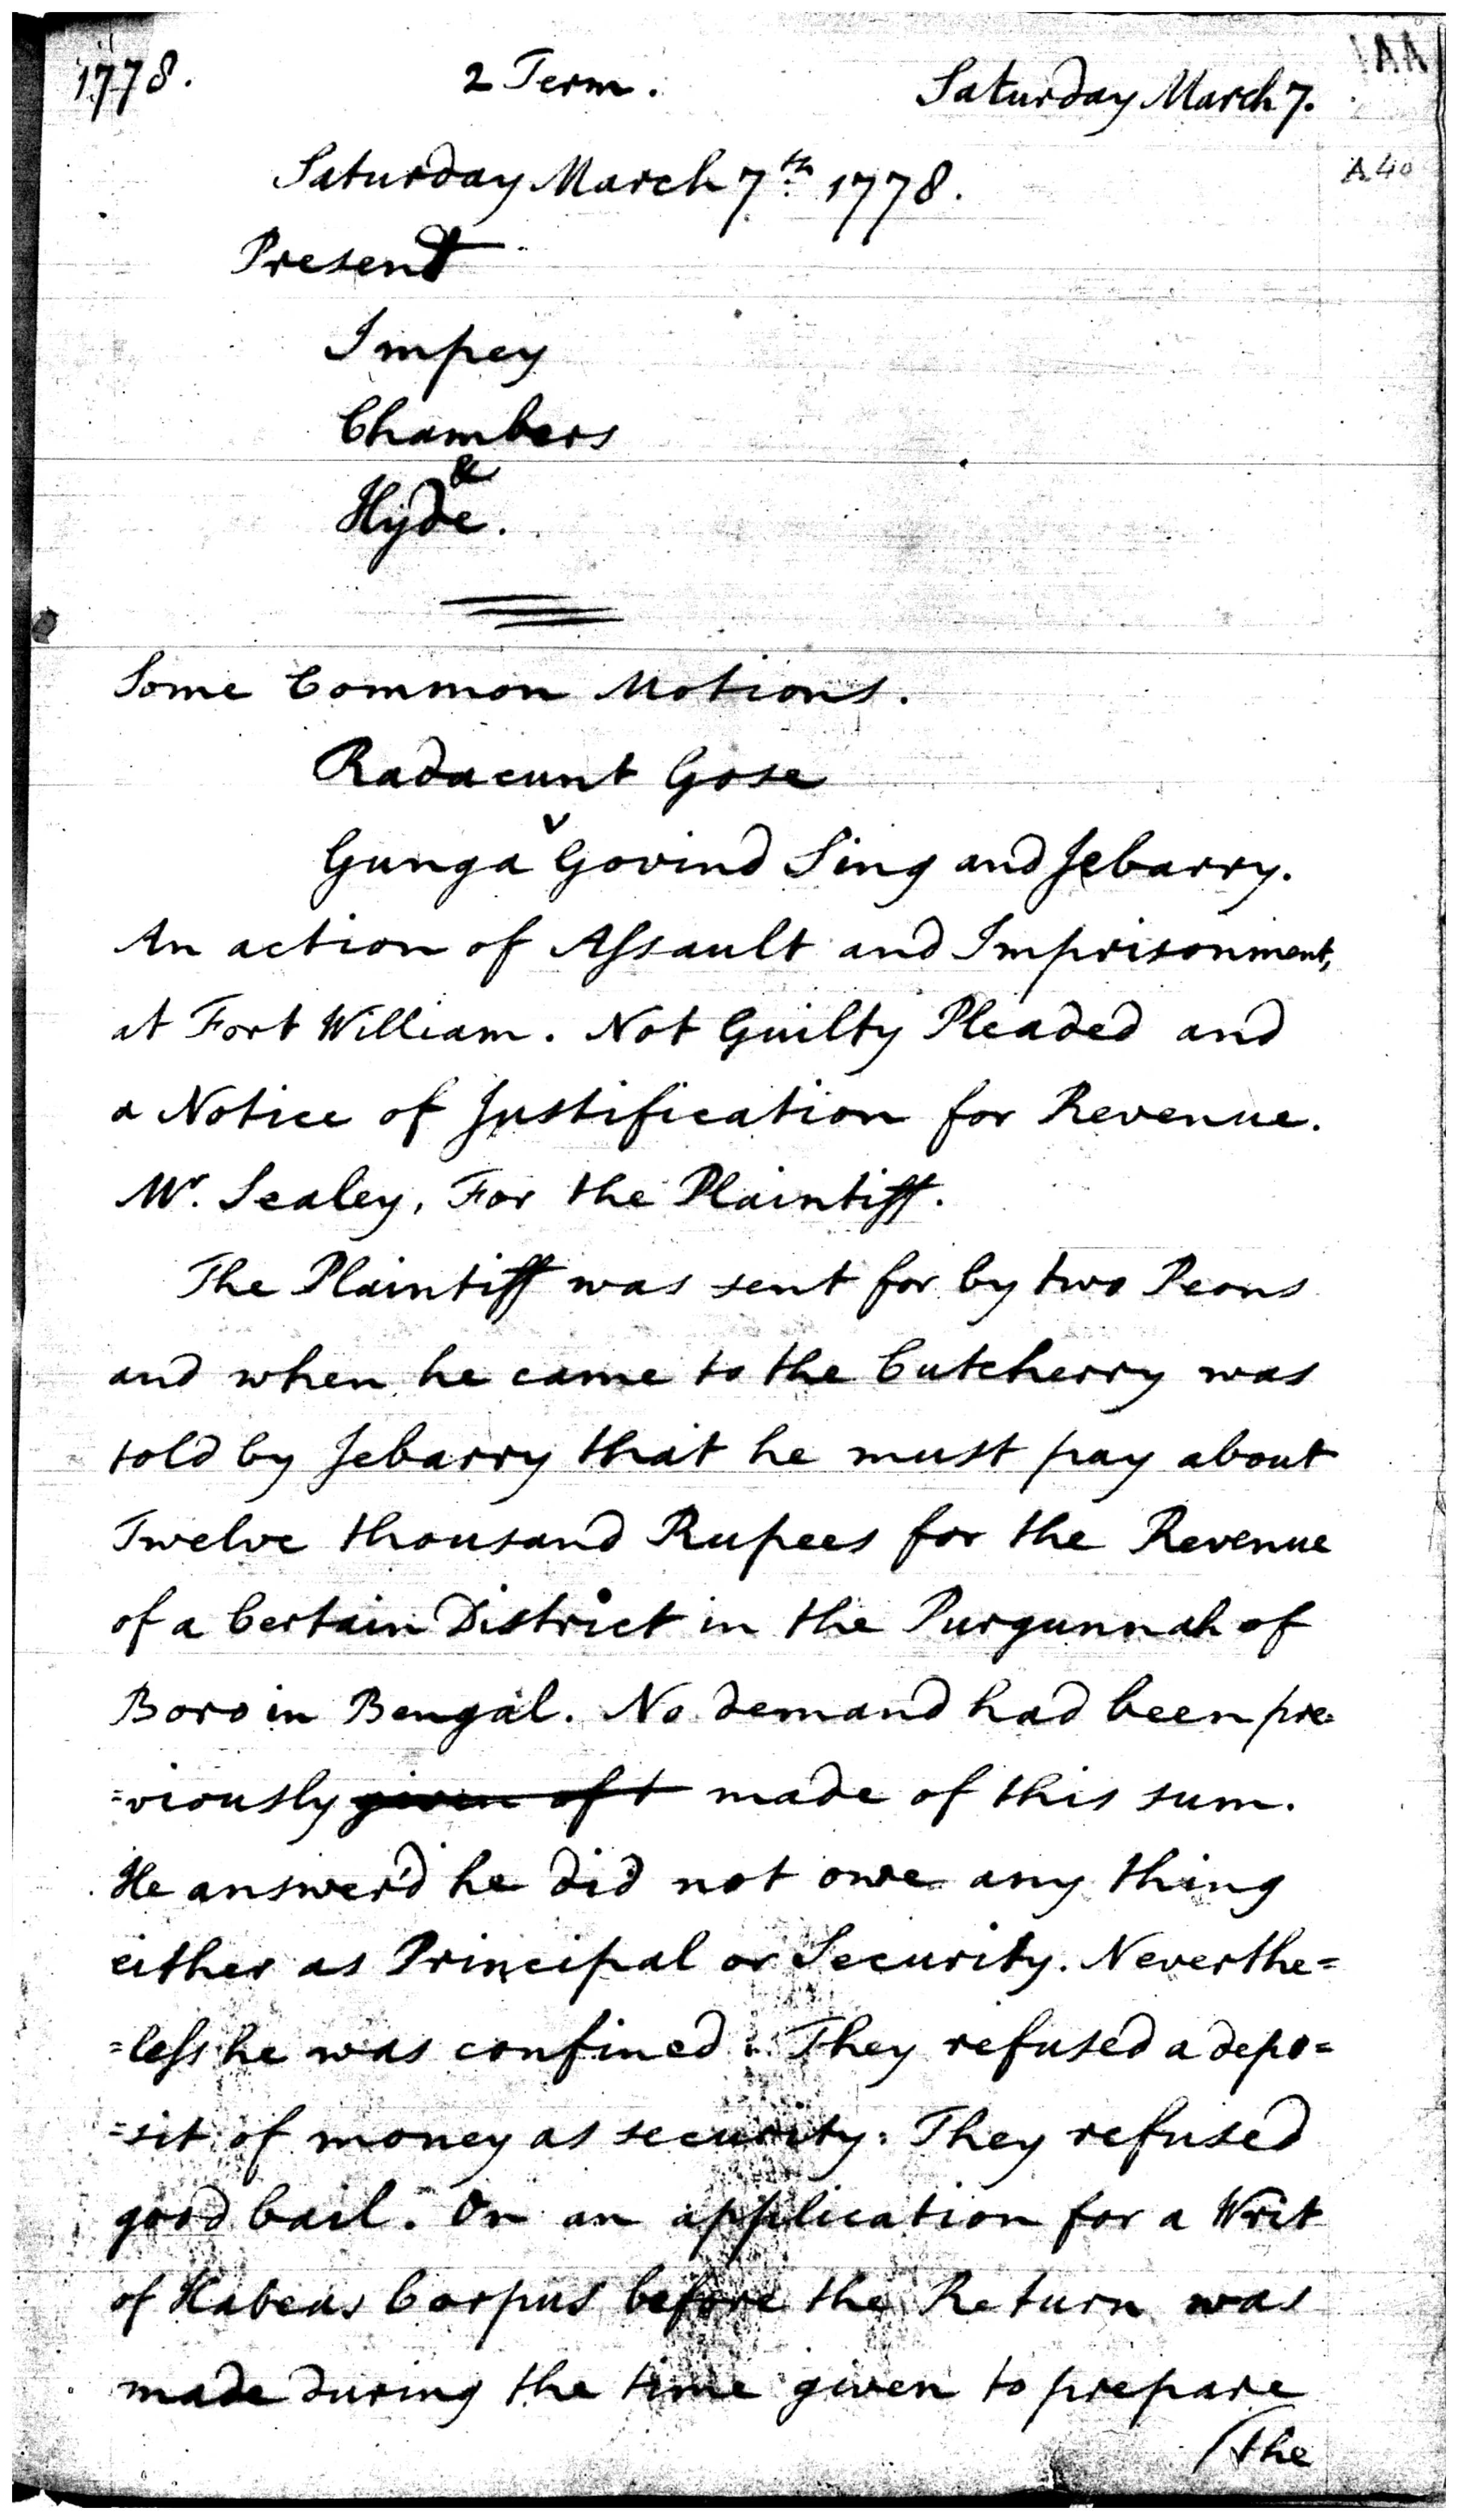 1778. 2 Term. Saturday March 7.
A.40
Saturday March 7th. 1778.
Present
Impey
Chambers
&
Hyde.
Some Common Motions.
Radacunt Gose
v
Gunga Govind Sing and Jebarry.
An action of Assault and Imprisonment,
at Fort William. Not Guilty Pleaded and
a Notice of Justification for Revenue.
Mr. Sealey, For the Plaintiff.
The Plaintiff was sent for by two Peons
and when he came to the Cutcherry was
told by Jebarry that he must pay about
Twelve thousand Rupees for the Revenue
of a Certain District in the Purgunnah of
Boro in Bengal. No demand had been pre=
=viously given of t made of this sum.
He answer'd he did not owe any thing
either as Principal or Security. Neverthe=
=less he was confined. They refused a depo=
=sit of money as security. They refused
good bail. On an application for a Writ
of Habeas Corpus before the Return was
made during the time given to prepare
(the